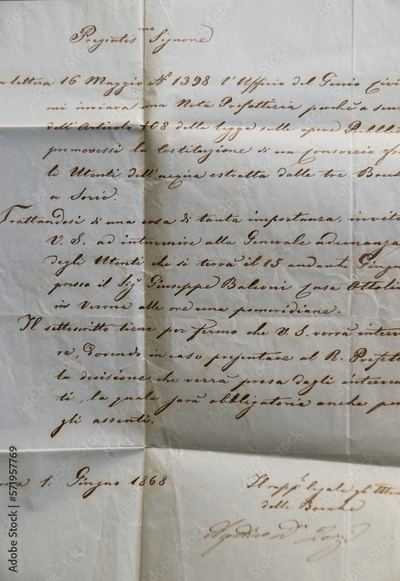 Pregiatis.mo Signore
lettera 16 Maggio N.° 1398 l'Ufficio del Genio Civi
mi inviava una Nota Prefettizia perchè a sens
dell'Articolo 108 della legge sulle opere Pubbli
promovessi la Costituzione di un Consorzio fra
li Utenti dell'acqua estratta dalle tre Bocche
a Sorio.
Trattandosi di una cosa di tanta importanza, invito
V. S. ad intervenire alla Generale adunanza
degli Utenti che si terrà il 15 andante Giugno
presso il Sig. Giuseppe Casa
in Verona alle ore una pomeridiane.
Il sottoscritto tiene per fermo che V. S. vorrà interv
re, dovendo in caso presentare al R. Prefett
la decisione che verrà presa dagli interven
ti, la quale sarà obbligatoria anche per
gli assenti.
1. Giugno 1868
Il rapp. legale
delle Bocche
Adobe Stock | #571957769